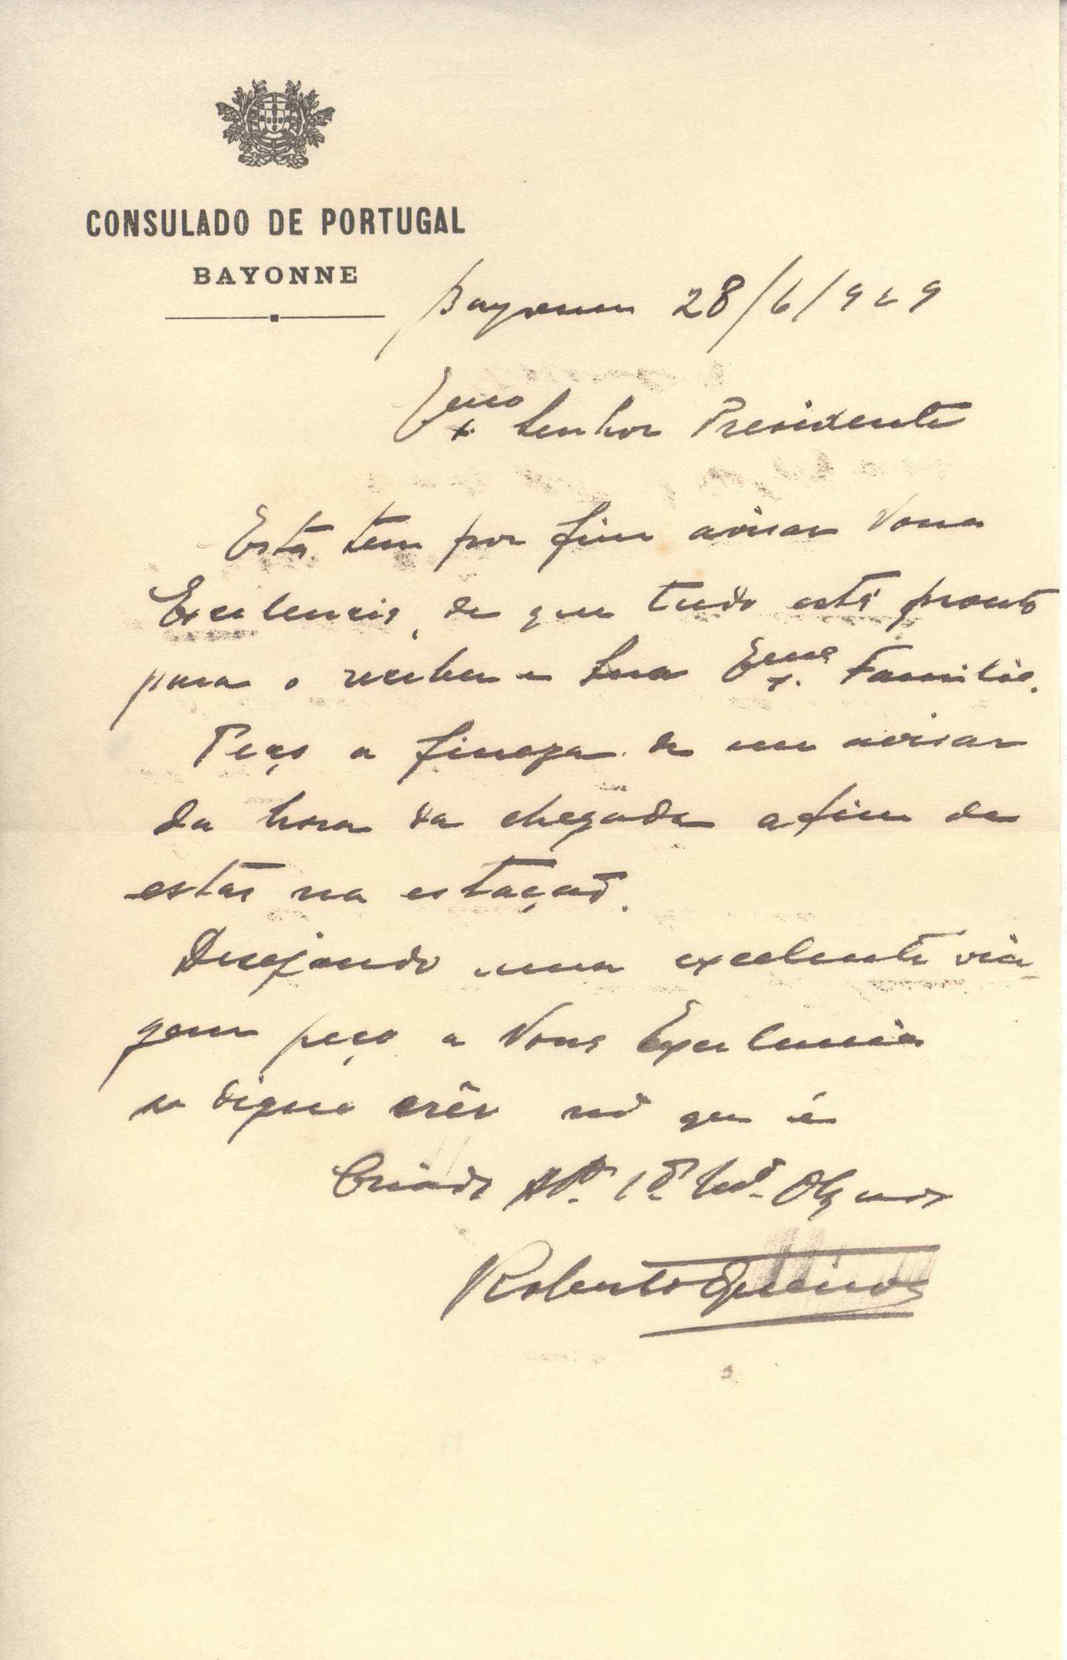 CONSULADO DE PORTUGAL
BAYONNE
Bayonne 28/6/929
Exmo Senhor Presidente
Esta tem por fim avisar Vossa
Excelencia, de que tudo está pronto
para o receber e Sua Exma Familia.
Peço a fineza de me avisar
da hora da chegada afim de
estar na estação.
Desejando uma excelente via-
gem peço a Vossa Excelencia
se digne crêr no que é
Criado Obgmo
Roberto Queiroz